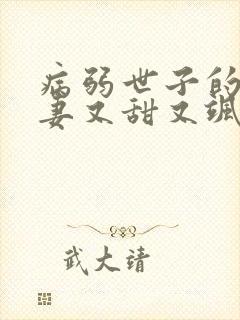 病弱世子的
妻又甜又飒
武大靖